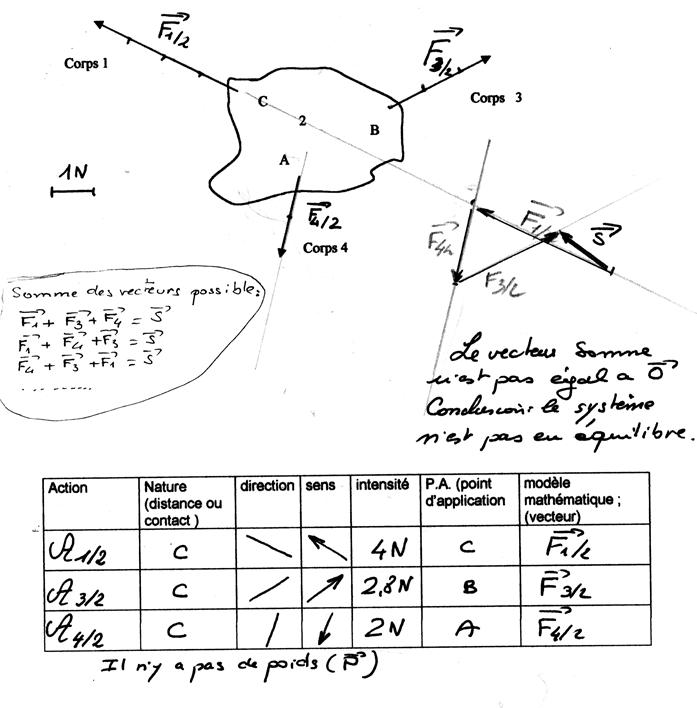 F1/2
F3/2
Corps 1
Corps 3
C
2
B
A
1N
F4/2
Corps 4
F1/2
S
F4/2
F3/2
Somme des vecteurs possible:
F1 + F3 + F4 = S
F1 + F4 + F3 = S
F4 + F3 + F1 = S
.........
Le vecteur somme
n'est pas égal a O
Conclusion: le système
n'est pas en équilibre.
Action Nature (distance ou contact ) direction sens intensité P.A. (point d'application modèle mathématique ; (vecteur)
A1/2 C 4N C F1/2
A3/2 C 2,8N B F3/2
A4/2 C 2N A F4/2
Il n'y a pas de poids (P)